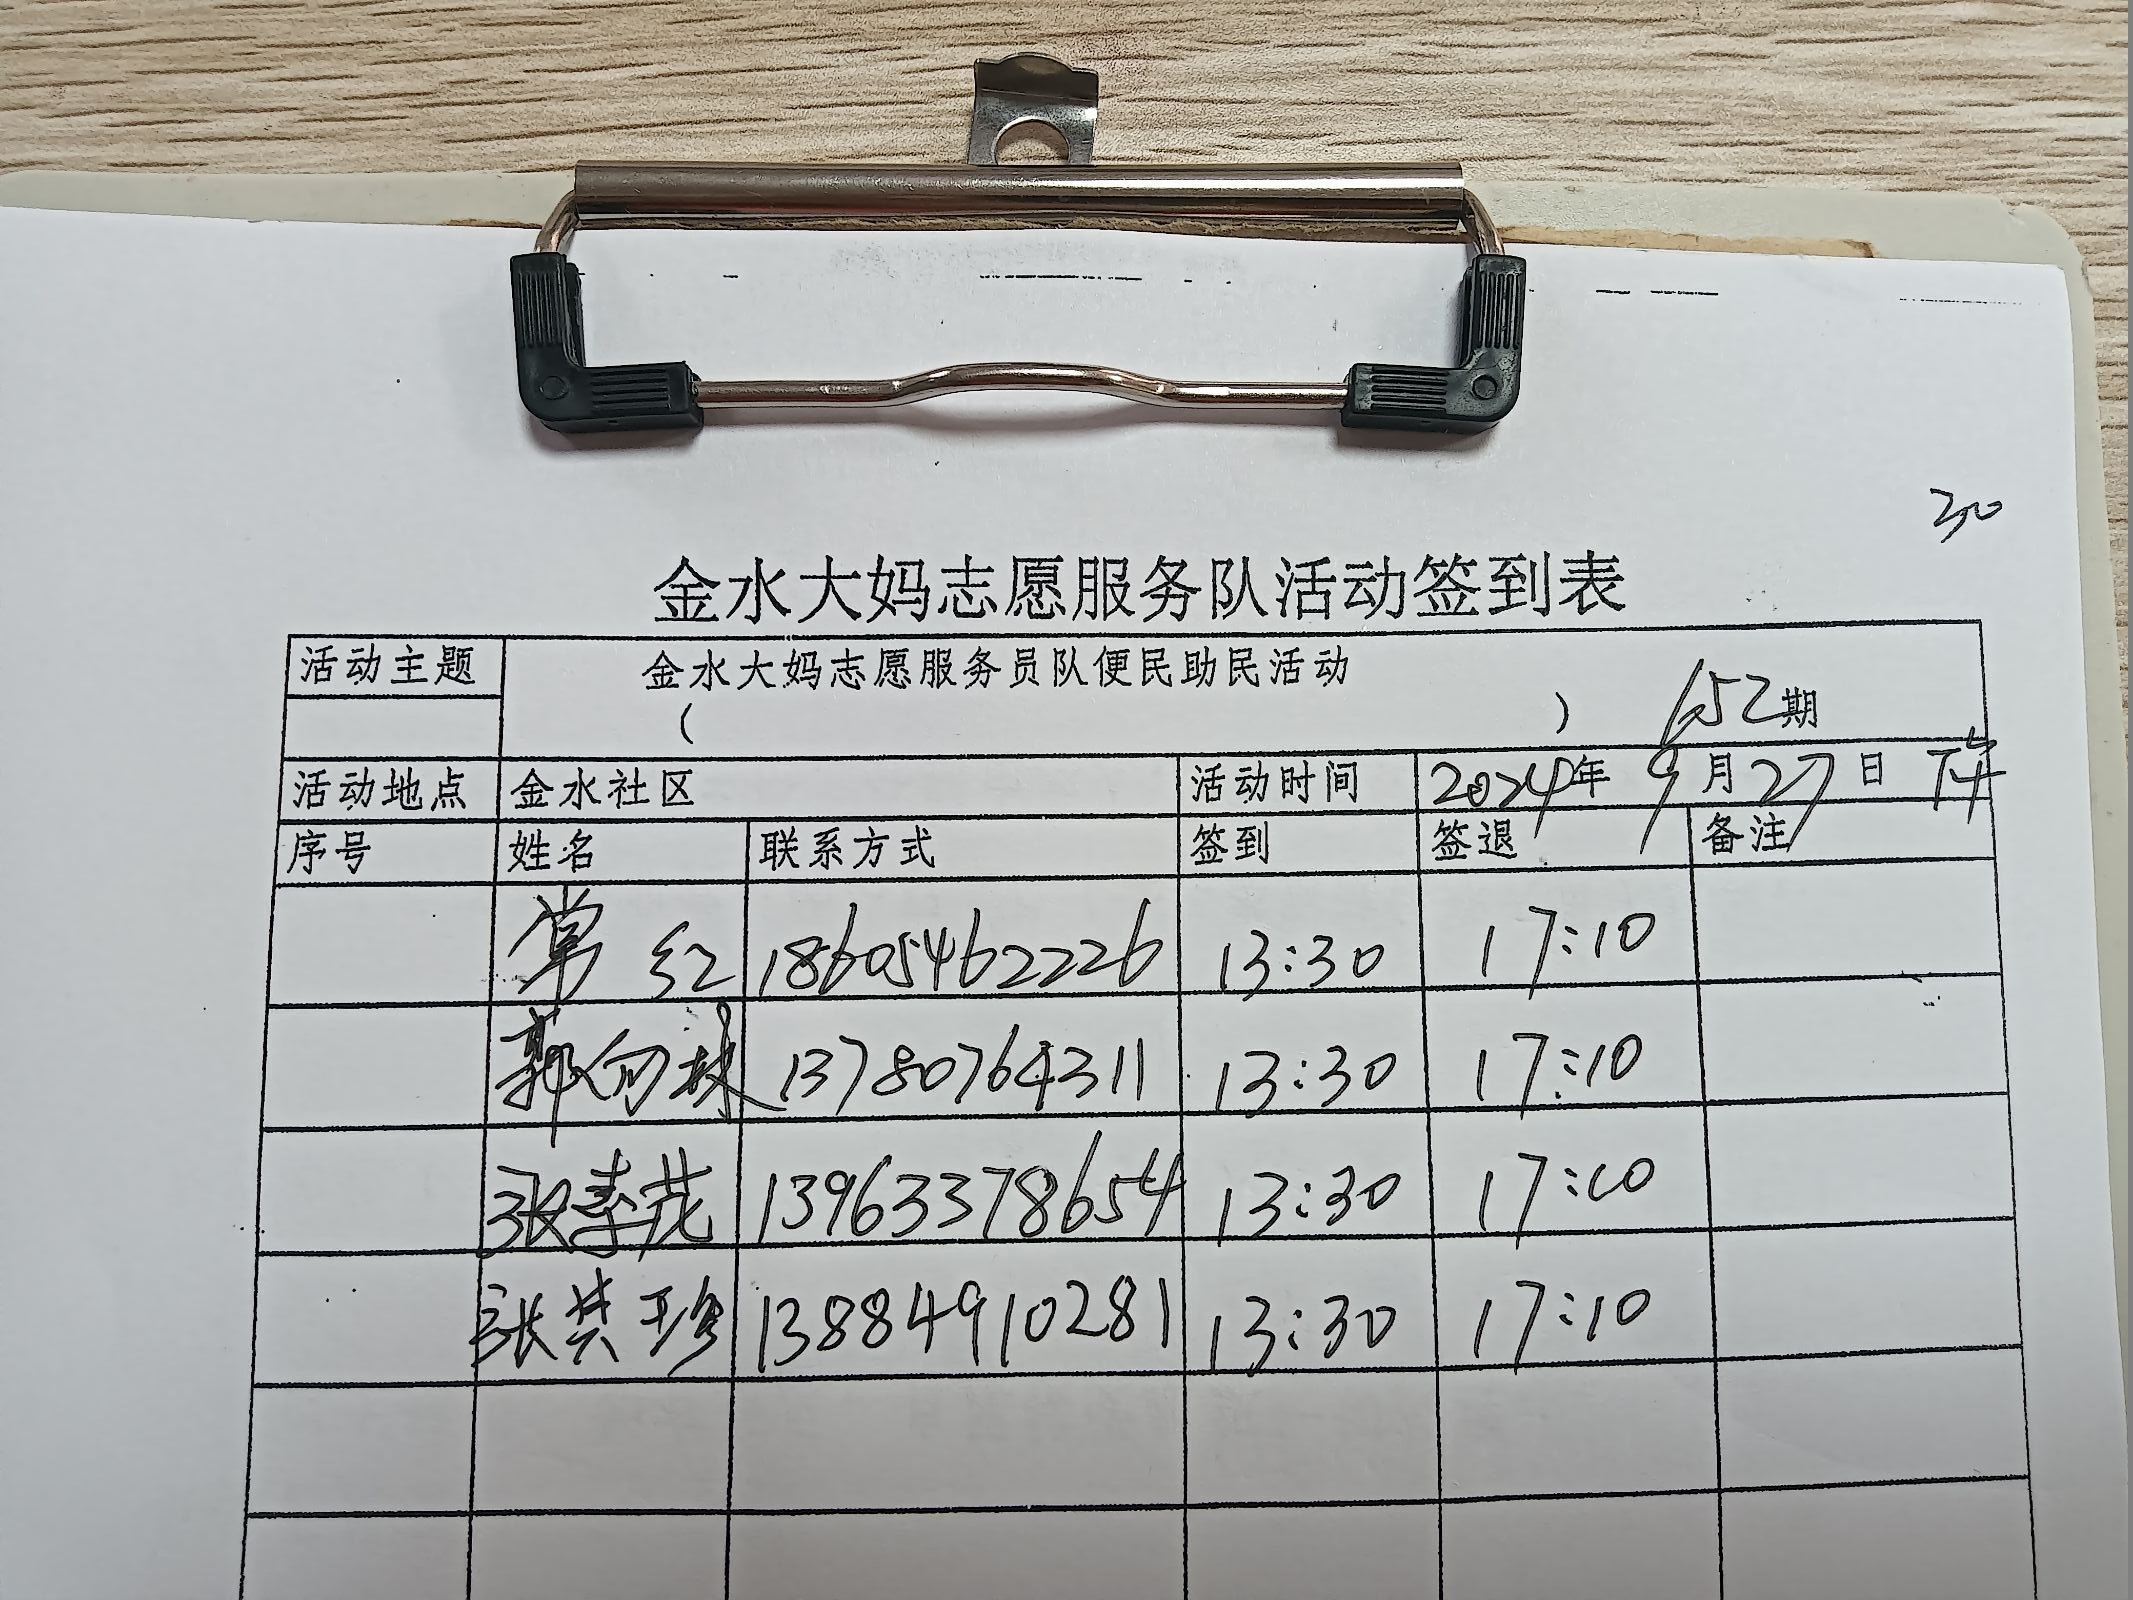 30
金水大妈志愿服务队活动签到表
活动主题 金水大妈志愿服务员队便民助民活动
( ) 652期
活动地点 金水社区 活动时间 2024年 9月27日 下午
序号 姓名 联系方式 签到 签退 备注
常红 18605462226 13:30 17:10
郭向林 13780764311 13:30 17:10
张春花 13963378654 13:30 17:10
张共珍 13884910281 13:30 17:10